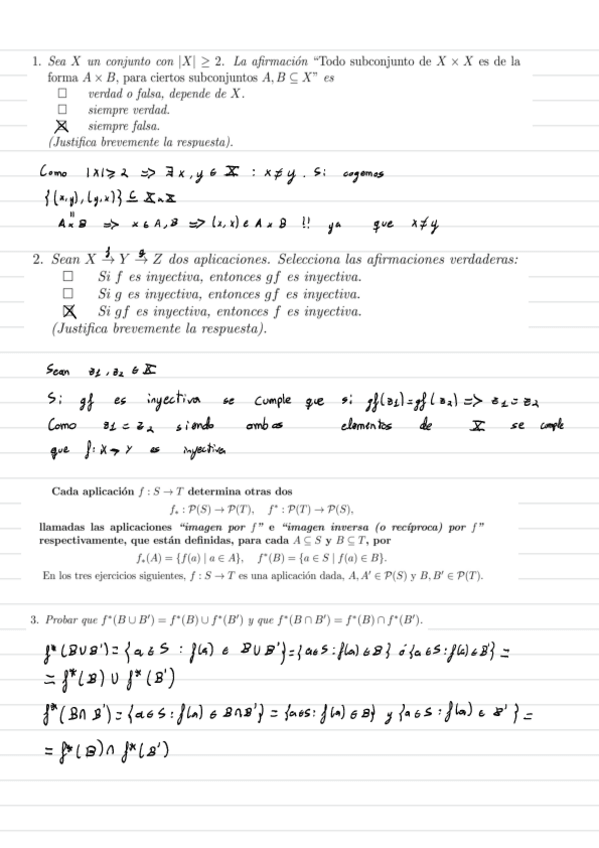 1. Sea X un conjunto con |X| ≥ 2. La afirmación "Todo subconjunto de X × X es de la
forma A × B, para ciertos subconjuntos A, B ⊆ X" es
☐ verdad o falsa, depende de X.
☐ siempre verdad.
☒ siempre falsa.
(Justifica brevemente la respuesta).
Como |X|≥2 => ∃ x,y ∈ X : x≠y. Si cogemos
{(x,y),(y,x)} ⊆ X×X
"
A×B => x ∈ A,B => (x,x) ∈ A×B !! ya que x≠y
2. Sean X →f Y →g Z dos aplicaciones. Selecciona las afirmaciones verdaderas:
☐ Si f es inyectiva, entonces gf es inyectiva.
☐ Si g es inyectiva, entonces gf es inyectiva.
☒ Si gf es inyectiva, entonces f es inyectiva.
(Justifica brevemente la respuesta).
Sean a1, a2 ∈ X
Si gf es inyectiva se cumple que si gf(a1)=gf(a2) => a1=a2
Como a1=a2 siendo ambos elementos de X se cumple
que f: X→Y es inyectiva
Cada aplicación f : S → T determina otras dos
f* : P(S) → P(T), f* : P(T) → P(S),
llamadas las aplicaciones "imagen por f" e "imagen inversa (o recíproca) por f"
respectivamente, que están definidas, para cada A ⊆ S y B ⊆ T, por
f*(A) = {f(a) | a ∈ A}, f*(B) = {a ∈ S | f(a) ∈ B}.
En los tres ejercicios siguientes, f : S → T es una aplicación dada, A, A' ∈ P(S) y B, B' ∈ P(T).
3. Probar que f*(B ∪ B') = f*(B) ∪ f*(B') y que f*(B ∩ B') = f*(B) ∩ f*(B').
f*(B∪B')={a∈S : f(a) ∈ B∪B'}={a∈S:f(a)∈B} ó {a∈S:f(a)∈B'} =
= f*(B) ∪ f*(B')
f*(B∩B')={a∈S:f(a)∈B∩B'} = {a∈S:f(a)∈B} y {a∈S:f(a)∈B'} =
= f*(B)∩ f*(B')